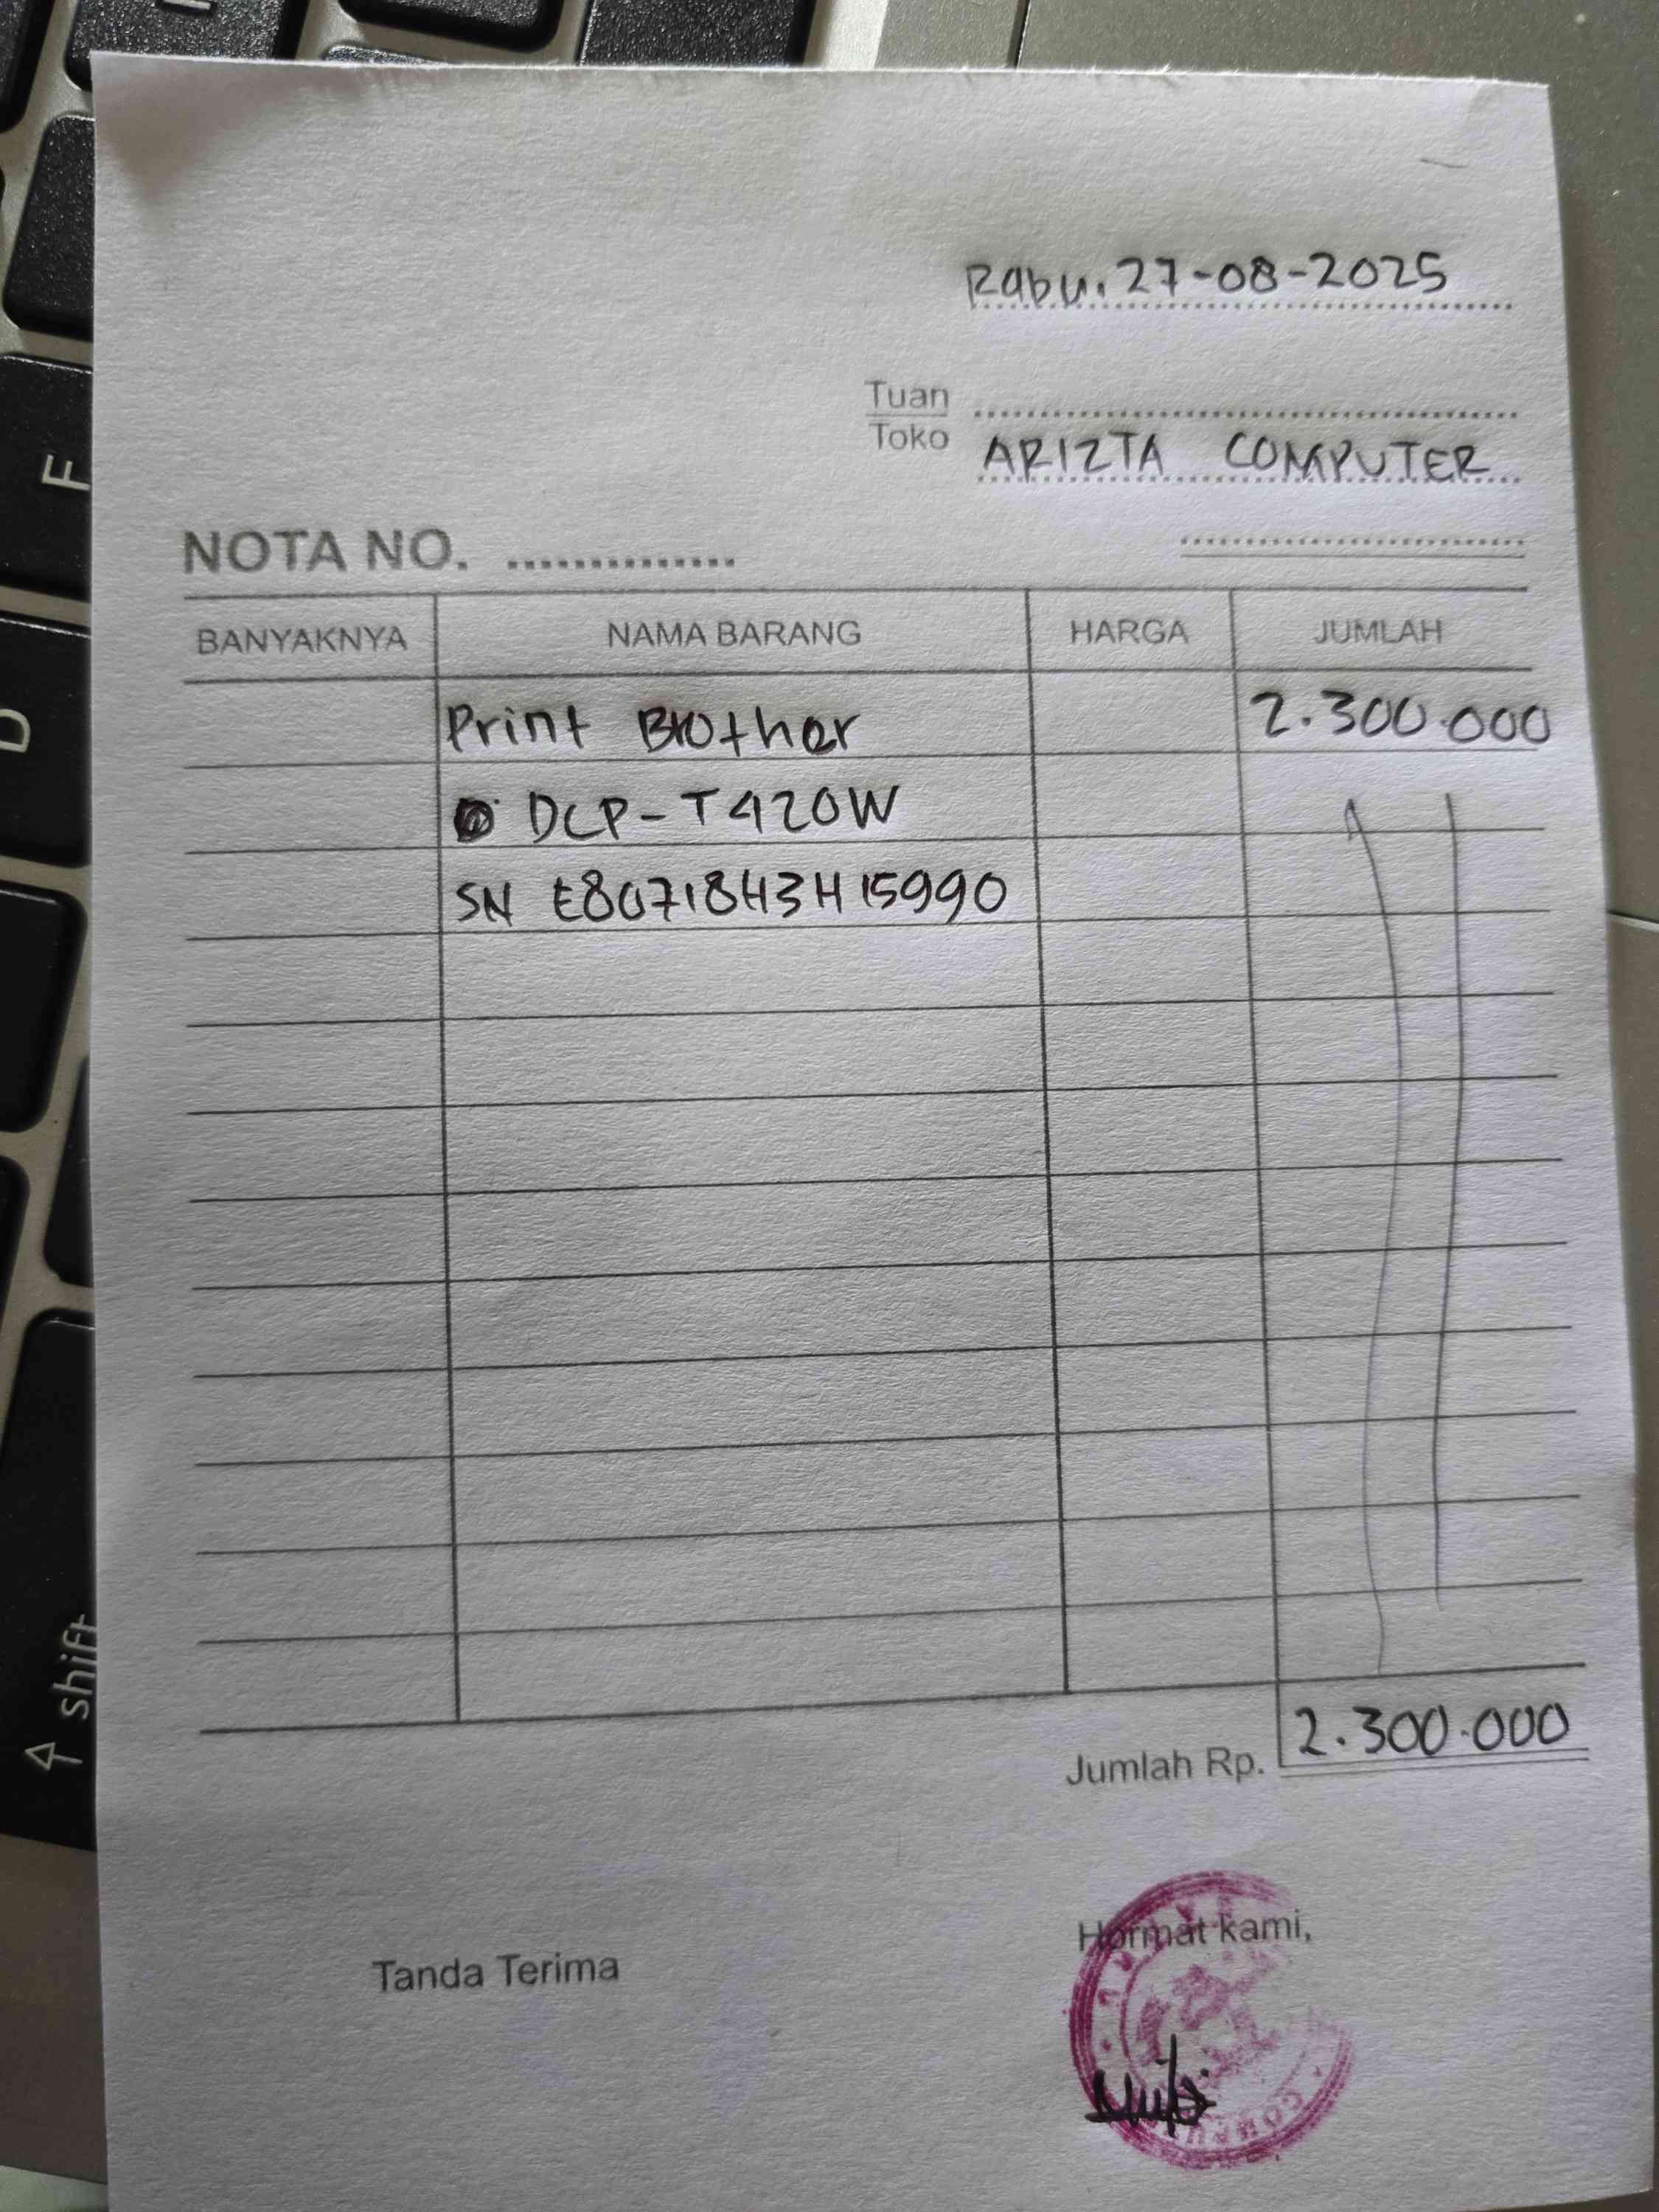 Rabu. 27-08-2025
Tuan
Toko ARIZTA COMPUTER
NOTA NO.
BANYAKNYA NAMA BARANG HARGA JUMLAH
Print Brother 2.300.000
DCP-T420W
SN E80718H3H15990
Jumlah Rp. 2.300.000
Tanda Terima
Hormat kami,
F
D
shift